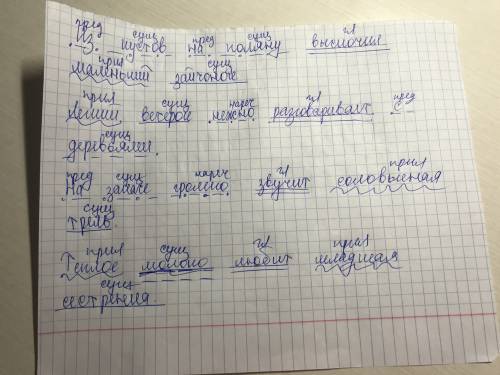 пред сущ пред сущ гл
Из кустов на поляну выскочил
прил сущ
маленький зайчонок.
прил сущ нареч гл пред
Летний ветерок нежно разговаривает с
сущ
деревьями.
пред сущ нареч гл прил
На закате громко звучит соловьиная
сущ
трель.
прил сущ гл прил
Теплое молоко любит младшая
сущ
сестрёнка.